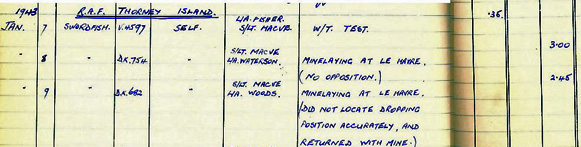 1943 R.A.F. THORNEY ISLAND.
L/A. FISHER. .35
JAN. 7 SWORDFISH. V.4597 SELF. S/LT. MACVE. W/T. TEST.
S/LT. MACVE 3.00
" 8 " D.K.754 " L/A. WATERSON. MINELAYING AT LE HAVRE.
(NO OPPOSITION.)
S/LT. MACVE 2.45
" 9 " D.K.682 " L/A. WOODS. MINELAYING AT LE HAVRE.
(DID NOT LOCATE DROPPING
POSITION ACCURATELY, AND
RETURNED WITH MINE.)